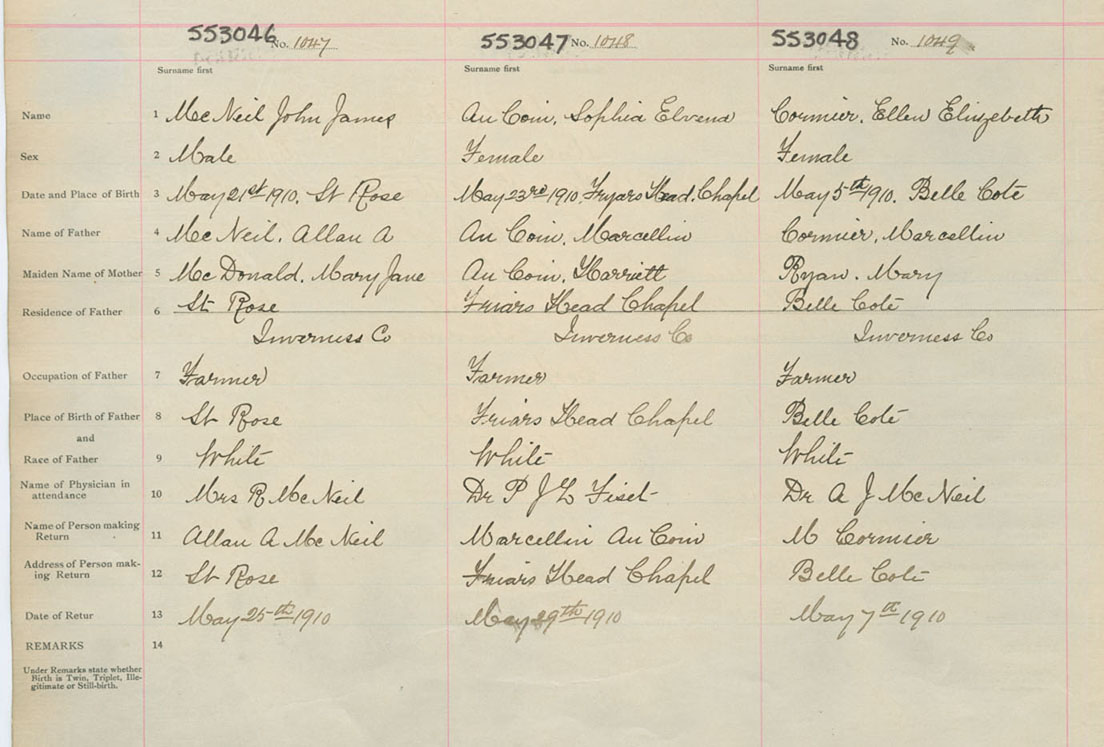 553046 No. 1047 553047 No. 1048 553048 No. 1049
Surname first Surname first Surname first
Name 1 McNeil John James Au Coin, Sophia Elvena Cormier, Ellen Elizebeth
Sex 2 Male Female Female
Date and Place of Birth 3 May 21st 1910, St Rose May 23rd 1910, Fryars Head, Chapel May 5th 1910, Belle Coté
Name of Father 4 McNeil, Allan A Au Coin, Marcellin Cormier, Marcellin
Maiden Name of Mother 5 McDonald, Mary Jane Au Coin, Harriett Ryan, Mary
Residence of Father 6 St Rose Friars Head Chapel Belle Coté
Inverness Co Inverness Co Inverness Co
Occupation of Father 7 Farmer Farmer Farmer
Place of Birth of Father 8 St Rose Friars Head Chapel Belle Coté
and
Race of Father 9 White White White
Name of Physician in
attendance 10 Mrs R McNeil Dr P J L Fiset Dr A J McNeil
Name of Person making
Return 11 Allan A McNeil Marcellin Au Coin M Cormier
Address of Person mak-
ing Return 12 St Rose Friars Head Chapel Belle Coté
Date of Retur 13 May 25th 1910 May 29th 1910 May 7th 1910
REMARKS 14
Under Remarks state whether
Birth is Twin, Triplet, Ille-
gitimate or Still-birth.